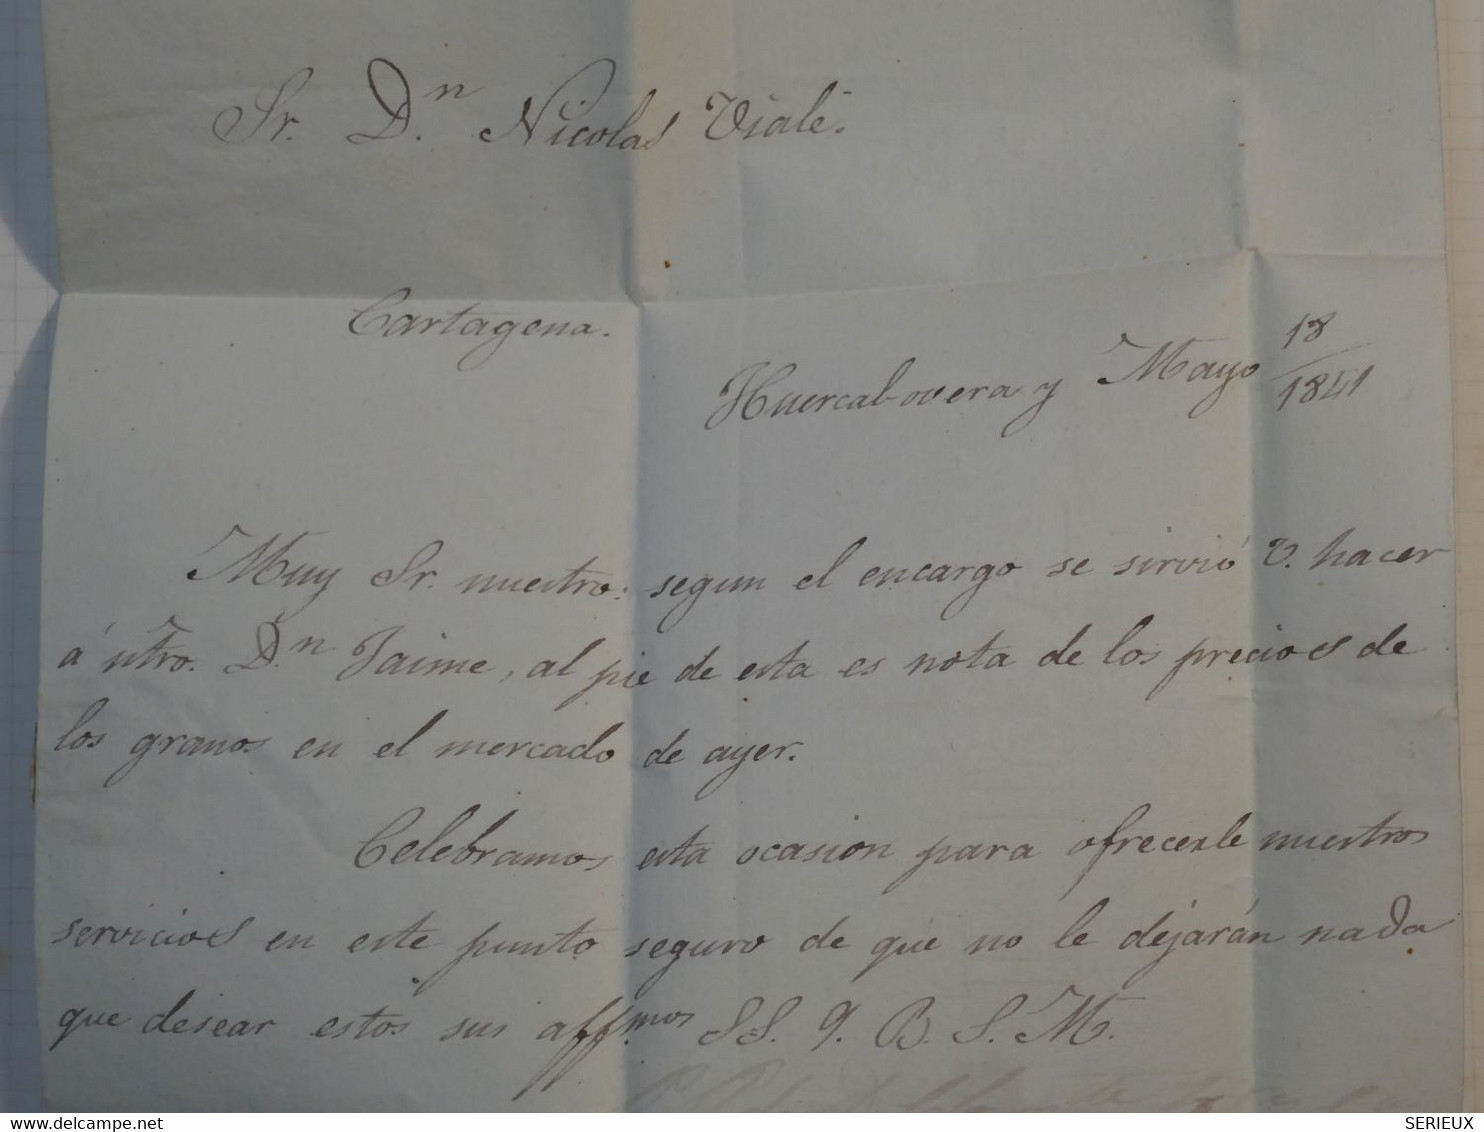 Sr. Dn. Nicolas Viale.
Cartagena.
Huercal-overa y Mayo 18/1841
Muy Sr. nuestro: segun el encargo se sirvió V. hacer
á ntro. Dn. Jaime, al pie de esta es nota de los precios de
los granos en el mercado de ayer.
Celebramos esta ocasion para ofrecerle nuestros
servicios en este punto seguro de que no le dejarán nada
que desear estos sus affmos. SS. q. B. S. M.
SERIEUX